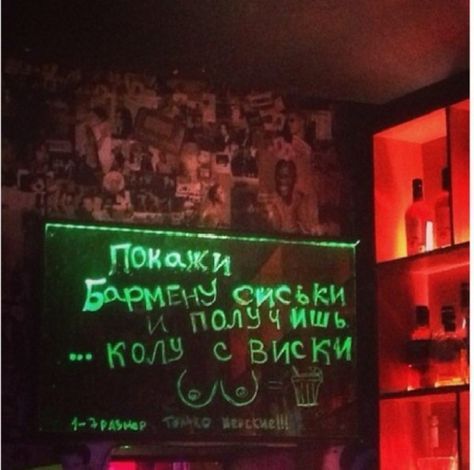 Покажи
Бармену сиськи
и получишь
... колу с виски
=
1-7 размер только женские!!!